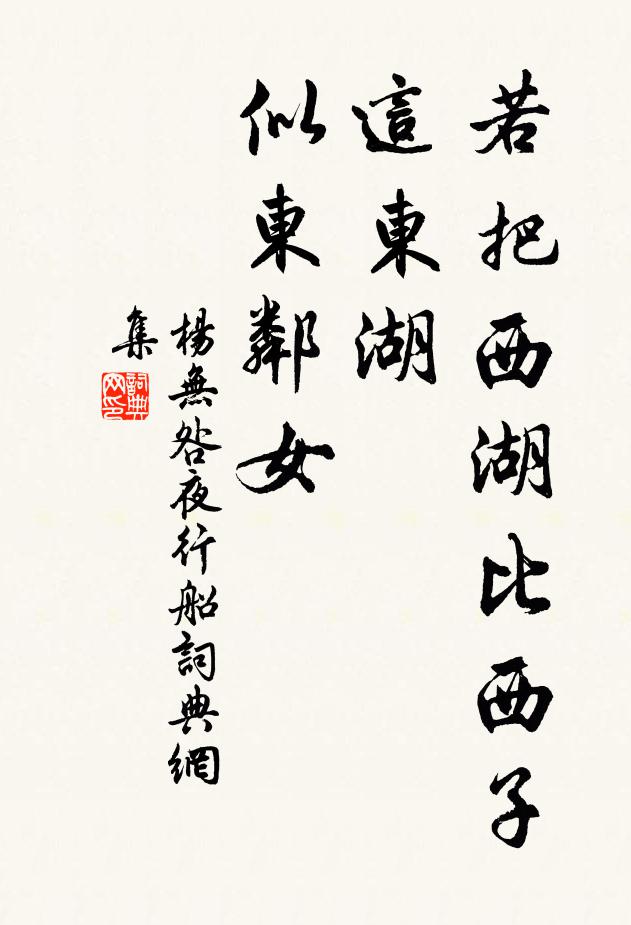 若把西湖比西子
這東湖
似東鄰女
楊無咎夜行船詞典網
集
詞典
网印